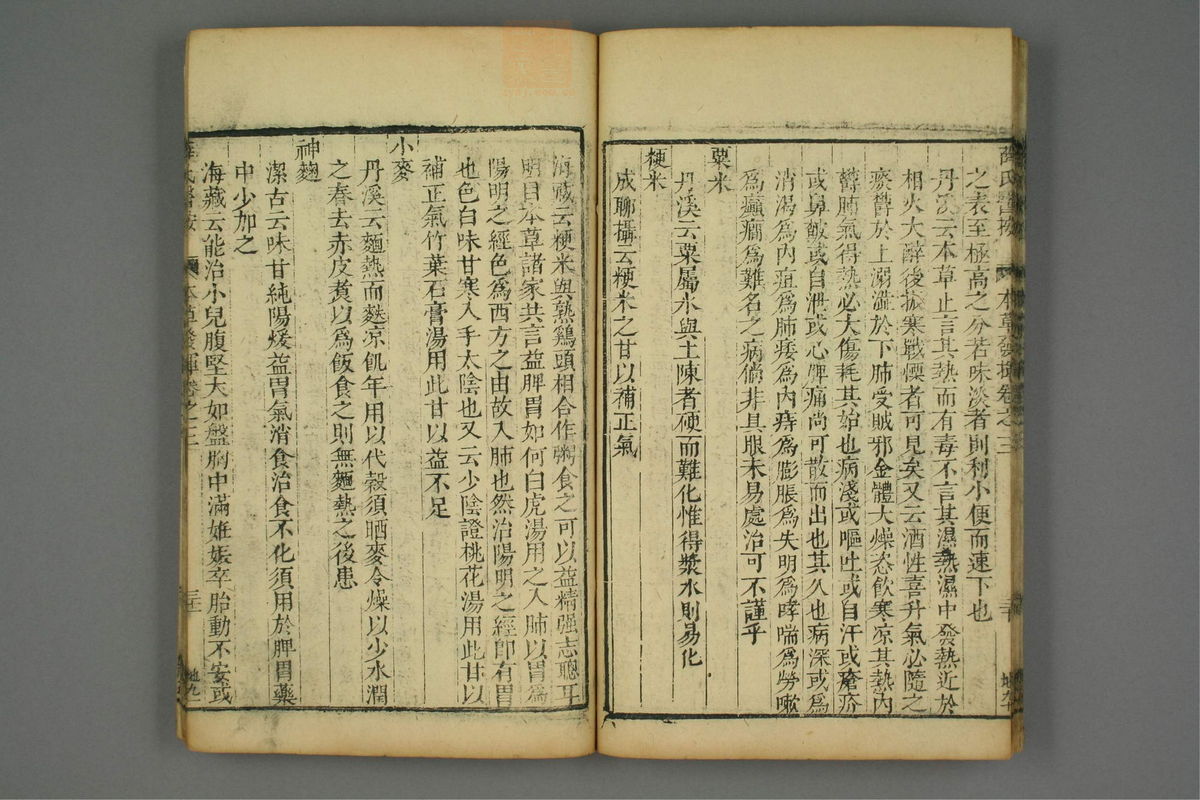 薛氏醫按 本草發揮卷之三
之表至極高之分若味淡者則利小便而速下也
丹溪云本草止言其熱而有毒不言其濕熱濕中發熱近於
相火大醉後振寒戰慄者可見矣又云酒性喜升氣必隨之
痰鬱於上溺澁於下肺受賊邪金體大燥恣飲寒凉其熱內
鬱肺氣得熱必大傷耗其始也病淺或嘔吐或自汗或瘡疥
或鼻皶或自泄或心脾痛尚可散而出也其久也病深或爲
消渴爲內疸爲肺痿爲內痔爲膨脹爲失明爲哮喘爲勞嗽
爲癲癇爲難名之病倘非具眼未易處治可不謹乎
粟米
丹溪云粟屬水與土陳者硬而難化惟得漿水則易化
粳米
成聊攝云粳米之甘以補正氣
海藏云粳米與熟鷄頭相合作粥食之可以益精强志聰耳
明目本草諸家共言益脾胃如何白虎湯用之入肺以胃爲
陽明之經色爲西方之由故入肺也然治陽明之經即有胃
也色白味甘寒入手太陰也又云少陰證桃花湯用此甘以
補正氣竹葉石膏湯用此甘以益不足
小麥
丹溪云麵熱而麩凉飢年用以代榖須晒麥令燥以少水潤
之舂去赤皮煑以爲飯食之則無麵熱之後患
神麯
潔古云味甘純陽煖益胃氣消食治食不化須用於脾胃藥
中少加之
海藏云能治小兒腹堅大如盤胸中滿姙娠卒胎動不安或
薛氏醫按 本草發揮卷之三